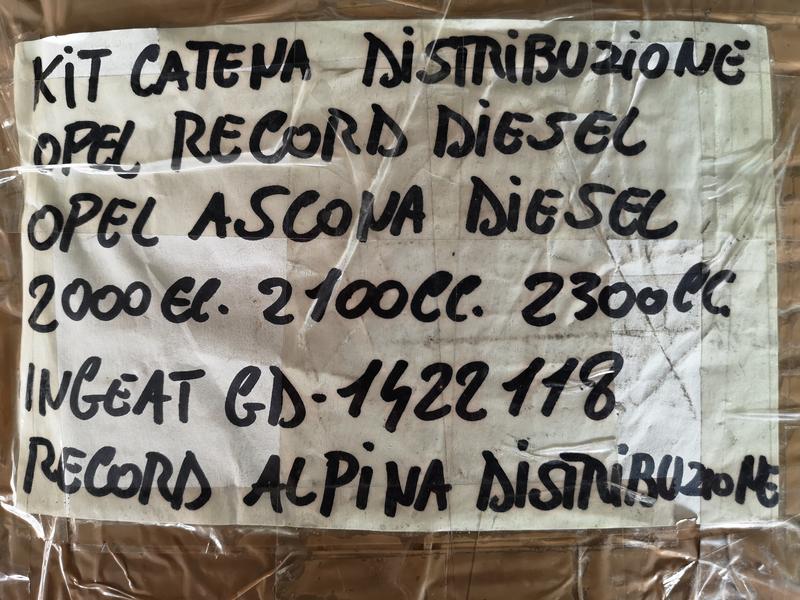 KIT CATENA DISTRIBUZIONE
OPEL RECORD DIESEL
OPEL ASCONA DIESEL
2000 CC. 2100 CC. 2300 CC.
INGEAT GD-1422118
RECORD ALPINA DISTRIBUZIONE